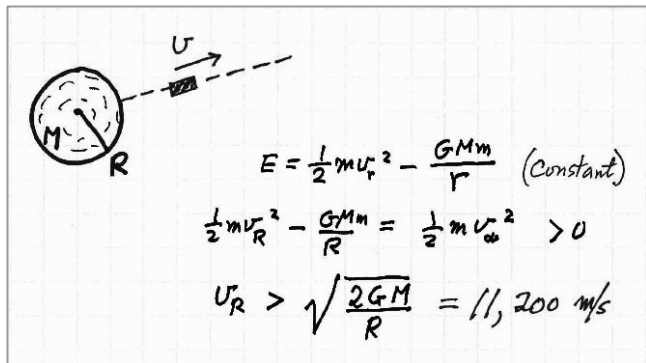 υ
M
R
E = ½ mυᵣ² − GMm/r (Constant)
½ mυ_R² − GMm/R = ½ mυ_∞² > 0
υ_R > √(2GM/R) = 11,200 m/s